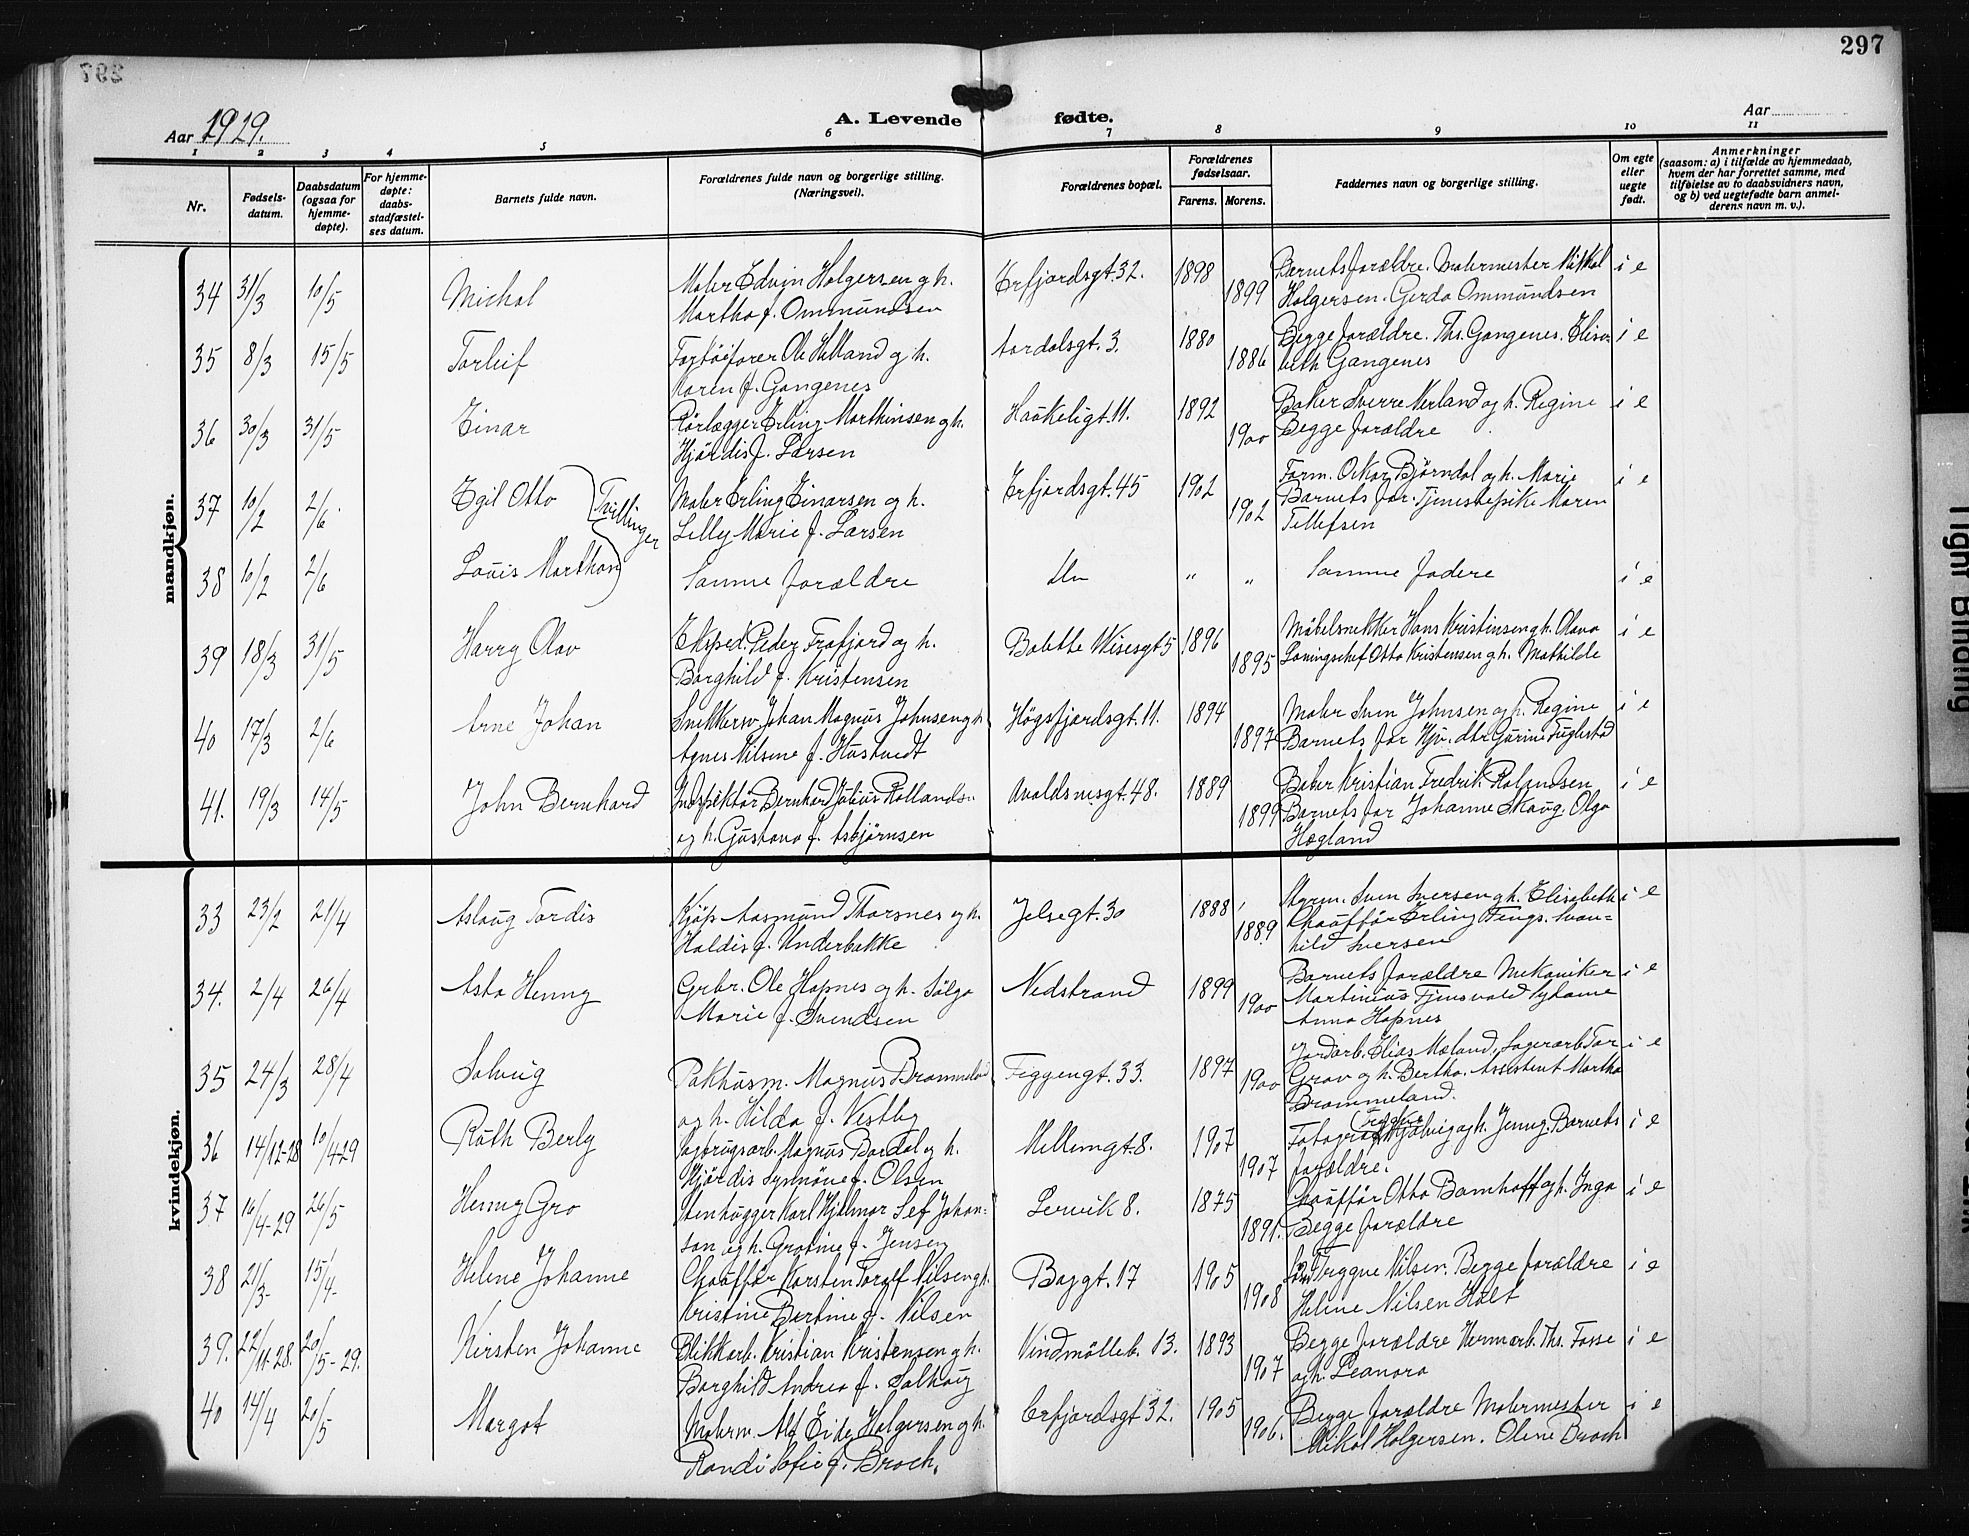 297
Aar 1929.
A. Levende fødte.
Aar
1 2 3 4 5 6 7 8 9 10 11
Nr.
Fødsels-
datum.
Daabsdatum
(ogsaa for
hjemme-
døpte).
For hjemme-
døpte:
daabs-
stadfæstel-
ses datum.
Barnets fulde navn.
Forældrenes fulde navn og borgerlige stilling.
(Næringsvei).
Forældrenes bopæl.
Forældrenes
fødselsaar.
Farens. Morens.
Faddernes navn og borgerlige stilling.
Om egte
eller
uegte
født.
Anmerkninger
(saasom: a) i tilfælde av hjemmedaab,
hvem der har forrettet samme, med
tilføielse av to daabsvidners navn,
og b) ved uegtefødte barn anmel-
derens navn m. v.).
mandkjøn.
34 31/3 10/5 Michal Maler Edvin Holgersen og h. Erfjordsgt. 32. 1898 Barnets forældre. Malermester Mikal i e
Martha f. Ommundsen 1899 Holgersen. Gerda Ommundsen
35 8/3 15/5 Torleif Ole Helland og h. Aardalsgt. 3. 1880 Begge forældre. Ths. Gangenes. Elisa- i e
Karen f. Gangenes 1886 beth Gangenes
36 30/3 31/5 Einar Rørlægger Erling Marthinsen og h. Haukeligt. 11. 1892 Baker Sverre Nerland og h. Regine i e
Hjørdis f. Larsen 1900 Begge forældre
37 10/2 2/6 Egil Otto Tvillinger Maler Erling Einarsen og h. Erfjordsgt. 45 1902 Form. Oskar Bjørndal og h. Marie i e
Lilly Marie f. Larsen 1902 Barnets far. Tjenestepike Maren
Tellefsen
38 10/2 2/6 Louis Marthon Samme forældre do " " Samme fadere i e
39 18/3 31/5 Harry Olav Eksped. Peder Frafjord og h. Bolette Wiesesgt 5 1896 Møbelsnekker Hans Kristinsen og h. Olava i e
Borghild f. Kristensen 1895 Otto Kristensen og h. Mathilde
40 17/3 2/6 Arne Johan Snekkersv. Johan Magnus Johnsen og h Høgsfjordsgt. 11. 1894 Maler Sven Johnsen og h. Regine i e
Agnes f. Hustvedt 1897 Barnets far Hjv. dtr Gurine Fuglestad
41. 19/3 14/5 John Bernhard Inspektør Bernhard Julius Avaldsnesgt. 48. 1889 Baker Kristian Fredrik Rolandsen i e
og h. Gustava f. Asbjørnsen 1899 Barnets far Johanne Skaug. Olga
Hægland
kvindekjøn.
33 23/2 21/4 Aslaug Tordis Kjøp Aasmund Thorsnes og h. Jelsegt. 30 1888 Sven Iversen og h. Elisabeth i e
Haldis f. Underbakke 1889 Chauffør Erling Tengs. Svan-
hild Iversen
34. 2/4 26/4 Asta Henny Grbr. Ole Hapnes og h. Sølga Nedstrand 1899 Barnets forældre Mekaniker i e
Marie f. Svendsen 1900 Martinius Tjensvold
Anna Hapnes
35 24/3 28/4 Solveig Pakhusm. Magnus Brommeland Figgengt. 33. 1897 Jordarb. Elias Mæland, Lagerarb Tor i e
og h. Hilda f. Vestby 1900 Grav og h. Bertha. Assistent Martha
Brommeland.
36 14/12-28 10/4-29 Ruth Berly Sagbrugsarb. Magnus Bardal og h. Hellemgt. 8. 1907 Fotograf og h. Jenny. Barnets i e
Hjørdis Synnøve f. Olsen 1907 forældre.
37 16/4-29 26/5 Henny Gro Stenhugger Karl Hjalmar Johan- Lervik 8. 1875 Chauffør Otto Bamhoff og h. Inga i e
son og h. Grotine f. Jensen 1891. Begge forældre
38 21/3- 15/4- Helene Johanne Chauffør Karsten Toralf Nilsen og h. Baggt. 17 1905 Trygve Nilsen. Begge forældre i e
Kristine Bertine f. Nilsen 1908 Heline Nilsen Hølt
39. 22/11-28. 20/5-29. Kirsten Johanne Blikkarb. Kristian Kristensen og h. Vindmølleb. 13. 1893 Begge forældre Hermarb. Ths. Fosse i e
Borghild Andrea f. Salhug 1907 og h. Leanora
40 14/4 20/5 Margot Malerm. Alf Eide Holgersen og h. Erfjordsgt 32. 1905 Begge forældre Malermester i e
Randi Sofie f. Broch. 1906. Mikal Holgersen. Olene Broch